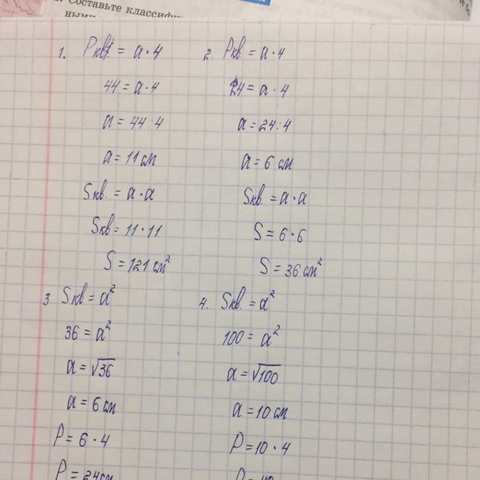 Составьте
ными
1. Pкв. = a · 4
44 = a · 4
a = 44 : 4
a = 11 см
Sкв = a · a
Sкв = 11 · 11
S = 121 см²
2. Pкв = a · 4
24 = a · 4
a = 24 : 4
a = 6 см
Sкв. = a · a
S = 6 · 6
S = 36 см²
3. Sкв = a²
36 = a²
a = √36
a = 6 см
P = 6 · 4
P = 24 см
4. Sкв. = a²
100 = a²
a = √100
a = 10 см
P = 10 · 4